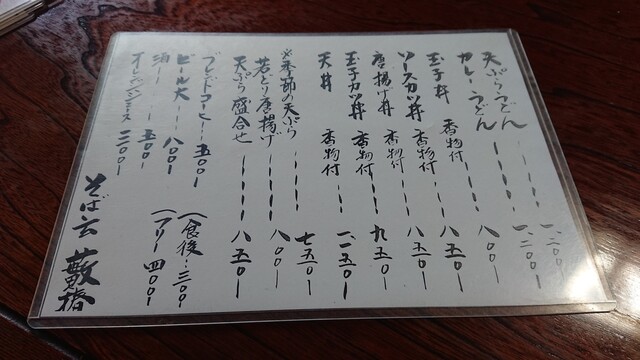 天ぷらうどん ---- 一、二〇〇ー
カレーうどん ---- 一、二〇〇ー
玉子丼 香物付 ---- 八〇〇ー
ソースカツ丼 香物付 ---- 八五〇ー
唐揚げ丼 香物付 ---- 八五〇ー
玉子カツ丼 香物付 ---- 九五〇ー
天丼 香物付 ---- 一、一五〇ー
※季節の天ぷら ---- 七五〇ー
若どり唐揚げ ---- 八〇〇ー
天ぷら盛合せ ---- 八五〇ー
ブレンドコーヒー -- 五〇〇ー (食後-三〇〇ー
ビール大 -- 八〇〇ー (フリー 四〇〇ー
酒 -- 五〇〇ー
オレンジジュース 三〇〇ー
そば 藪椿